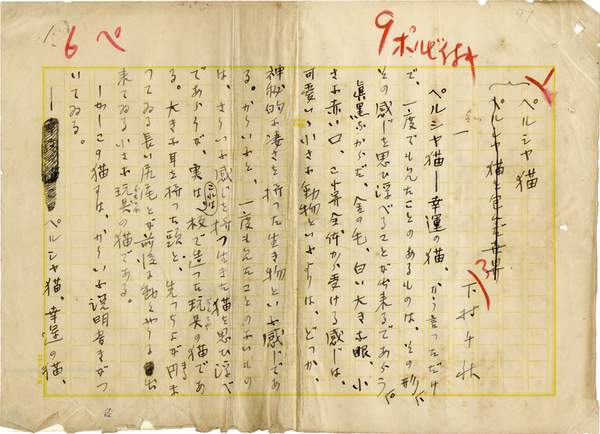 9ポ
6 ペ
ペルシャ猫
ペルシャ猫を
下村千秋
一
ペルシャ猫―幸運の猫、かう言つただけ
で、一度でも見たことのあるものは、その形に
その感じを思ひ浮べることが出来るであらう。
眞黒なからだ、金の毛、白い大きな眼、小
さな赤い口、これ等全体から受ける感じは、
可愛いゝ小さな動物といふよりは、どつか、
神秘的な凄さを持つた生き物といふ感じであ
る。かういふと、一度も見たことのないもの
は、さういふ感じを持つ生きた猫を思ひ浮べ
るであらうが、実は、これは、枝で造つた玩具の猫であ
る。大きな耳を持つた頭と、先つちよが円ま
つてゐる長い尻尾とが前後に動くやうに出
来てゐる小さな玩具の猫である。
しかしこの猫には、かういふ説明書きがつ
いてゐる。
―ペルシャ猫、幸運の猫、